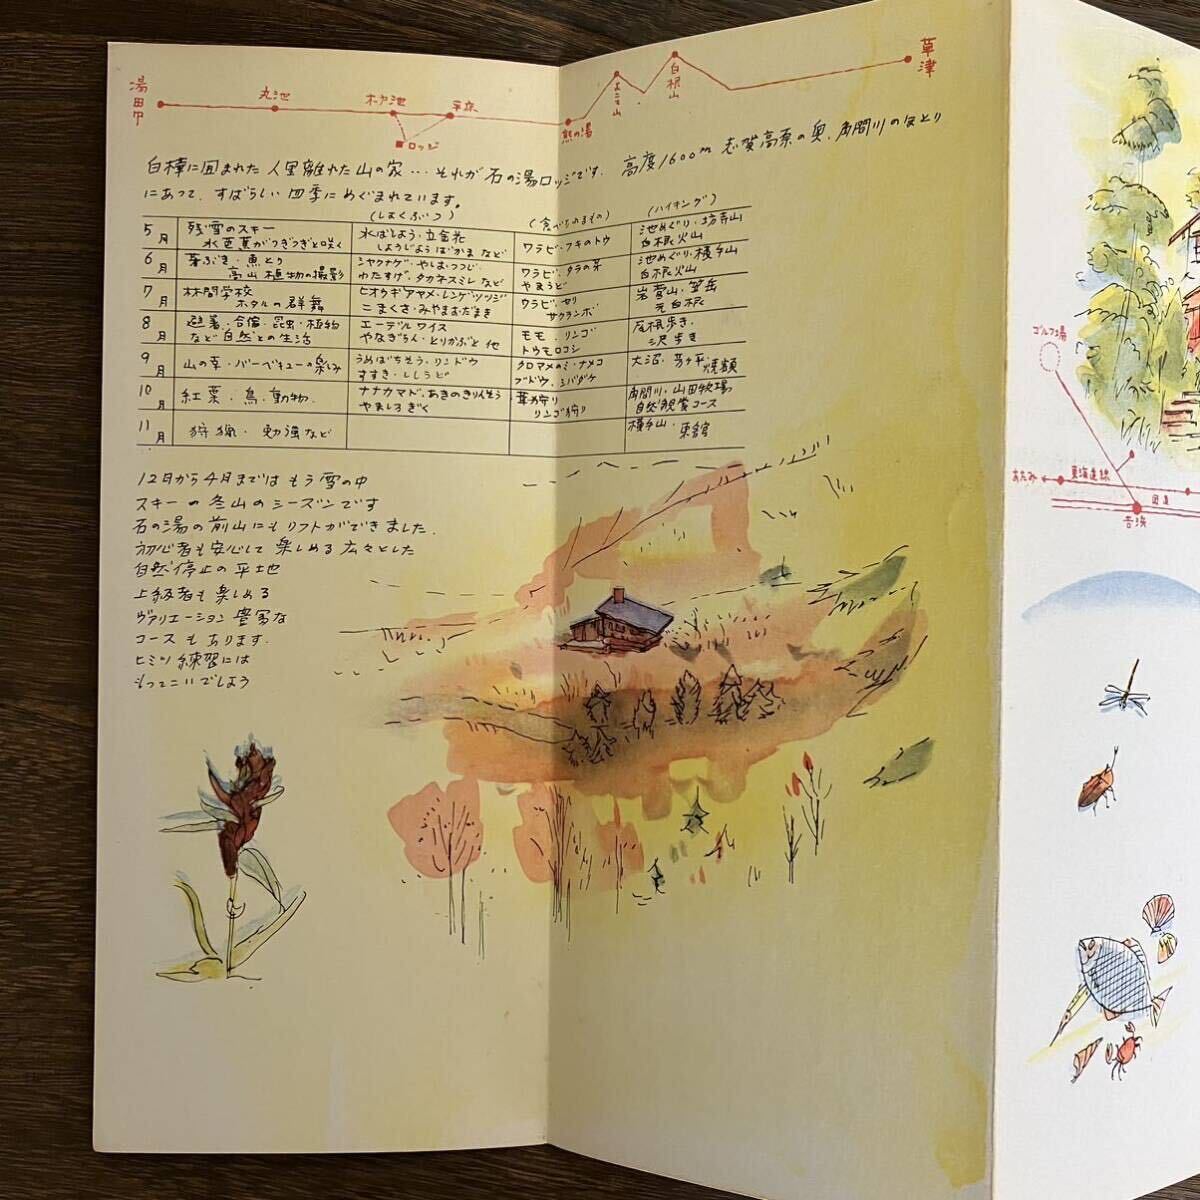 湯田中
丸池
木戸池
平床
ロッジ
熊の湯
よこて山
白根山
草津
白樺に囲まれた 人里離れた山の家…それが石の湯ロッジです. 高度1600m 志賀高原の奥、角間川のほとり
にあって、すばらしい四季にめぐまれています。
(しょくぶつ) (食べられるもの) (ハイキング)
5月 残雪のスキー 水ばしょう・立金花 ワラビ・フキのトウ 池めぐり・坊寺山
水芭蕉がつぎつぎと咲く しょうじょうばかま など 白根火山
6月 芽ぶき・魚とり シャクナゲ・やしお・つつじ ワラビ、タラの芽 池めぐり・横手山
高山植物の撮影 わたすげ・タカネスミレ など やまうど 白根火山
7月 林間学校 ヒオウギアヤメ・レンゲツツジ ワラビ・セリ 岩菅山・笠岳
ホタルの群舞 こまくさ・みやまおだまき サクランボ 元白根
8月 避暑・合宿・昆虫・植物 エーデルワイス モモ・リンゴ 尾根歩き・
など自然との生活 やなぎらん・とりかぶと 他 トウモロコシ 沢歩き
9月 山の幸・バーベキューの楽しみ うめばちそう・リンドウ クロマメのミ・ナメコ 大沼・芳ヶ平
すすき・ししうど ブドウ、シバタケ 焼額
10月 紅葉・鳥・動物. ナナカマド、あきのきりんそう 茸狩り 角間川・山田牧場
やましろぎく リンゴ狩り 自然観賞コース
11月 狩猟・勉強など 横手山・東館
12月から4月まではもう雪の中
スキーの冬山のシーズンです
石の湯の前山にもリフトができました.
初心者も安心して 楽しめる広々とした
自然停止の平地
上級者も楽しめる
ヴァリエーション豊富な
コースもあります.
ヒミツ練習には
もってこいでしょう
ゴルフ場
あたみ
東海道線
国道
吉浜